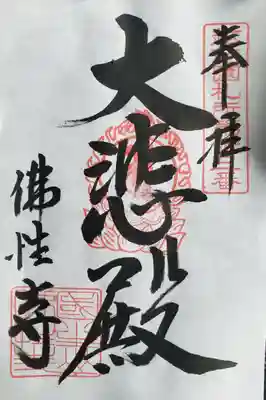 奉拝
大悲殿
佛性寺